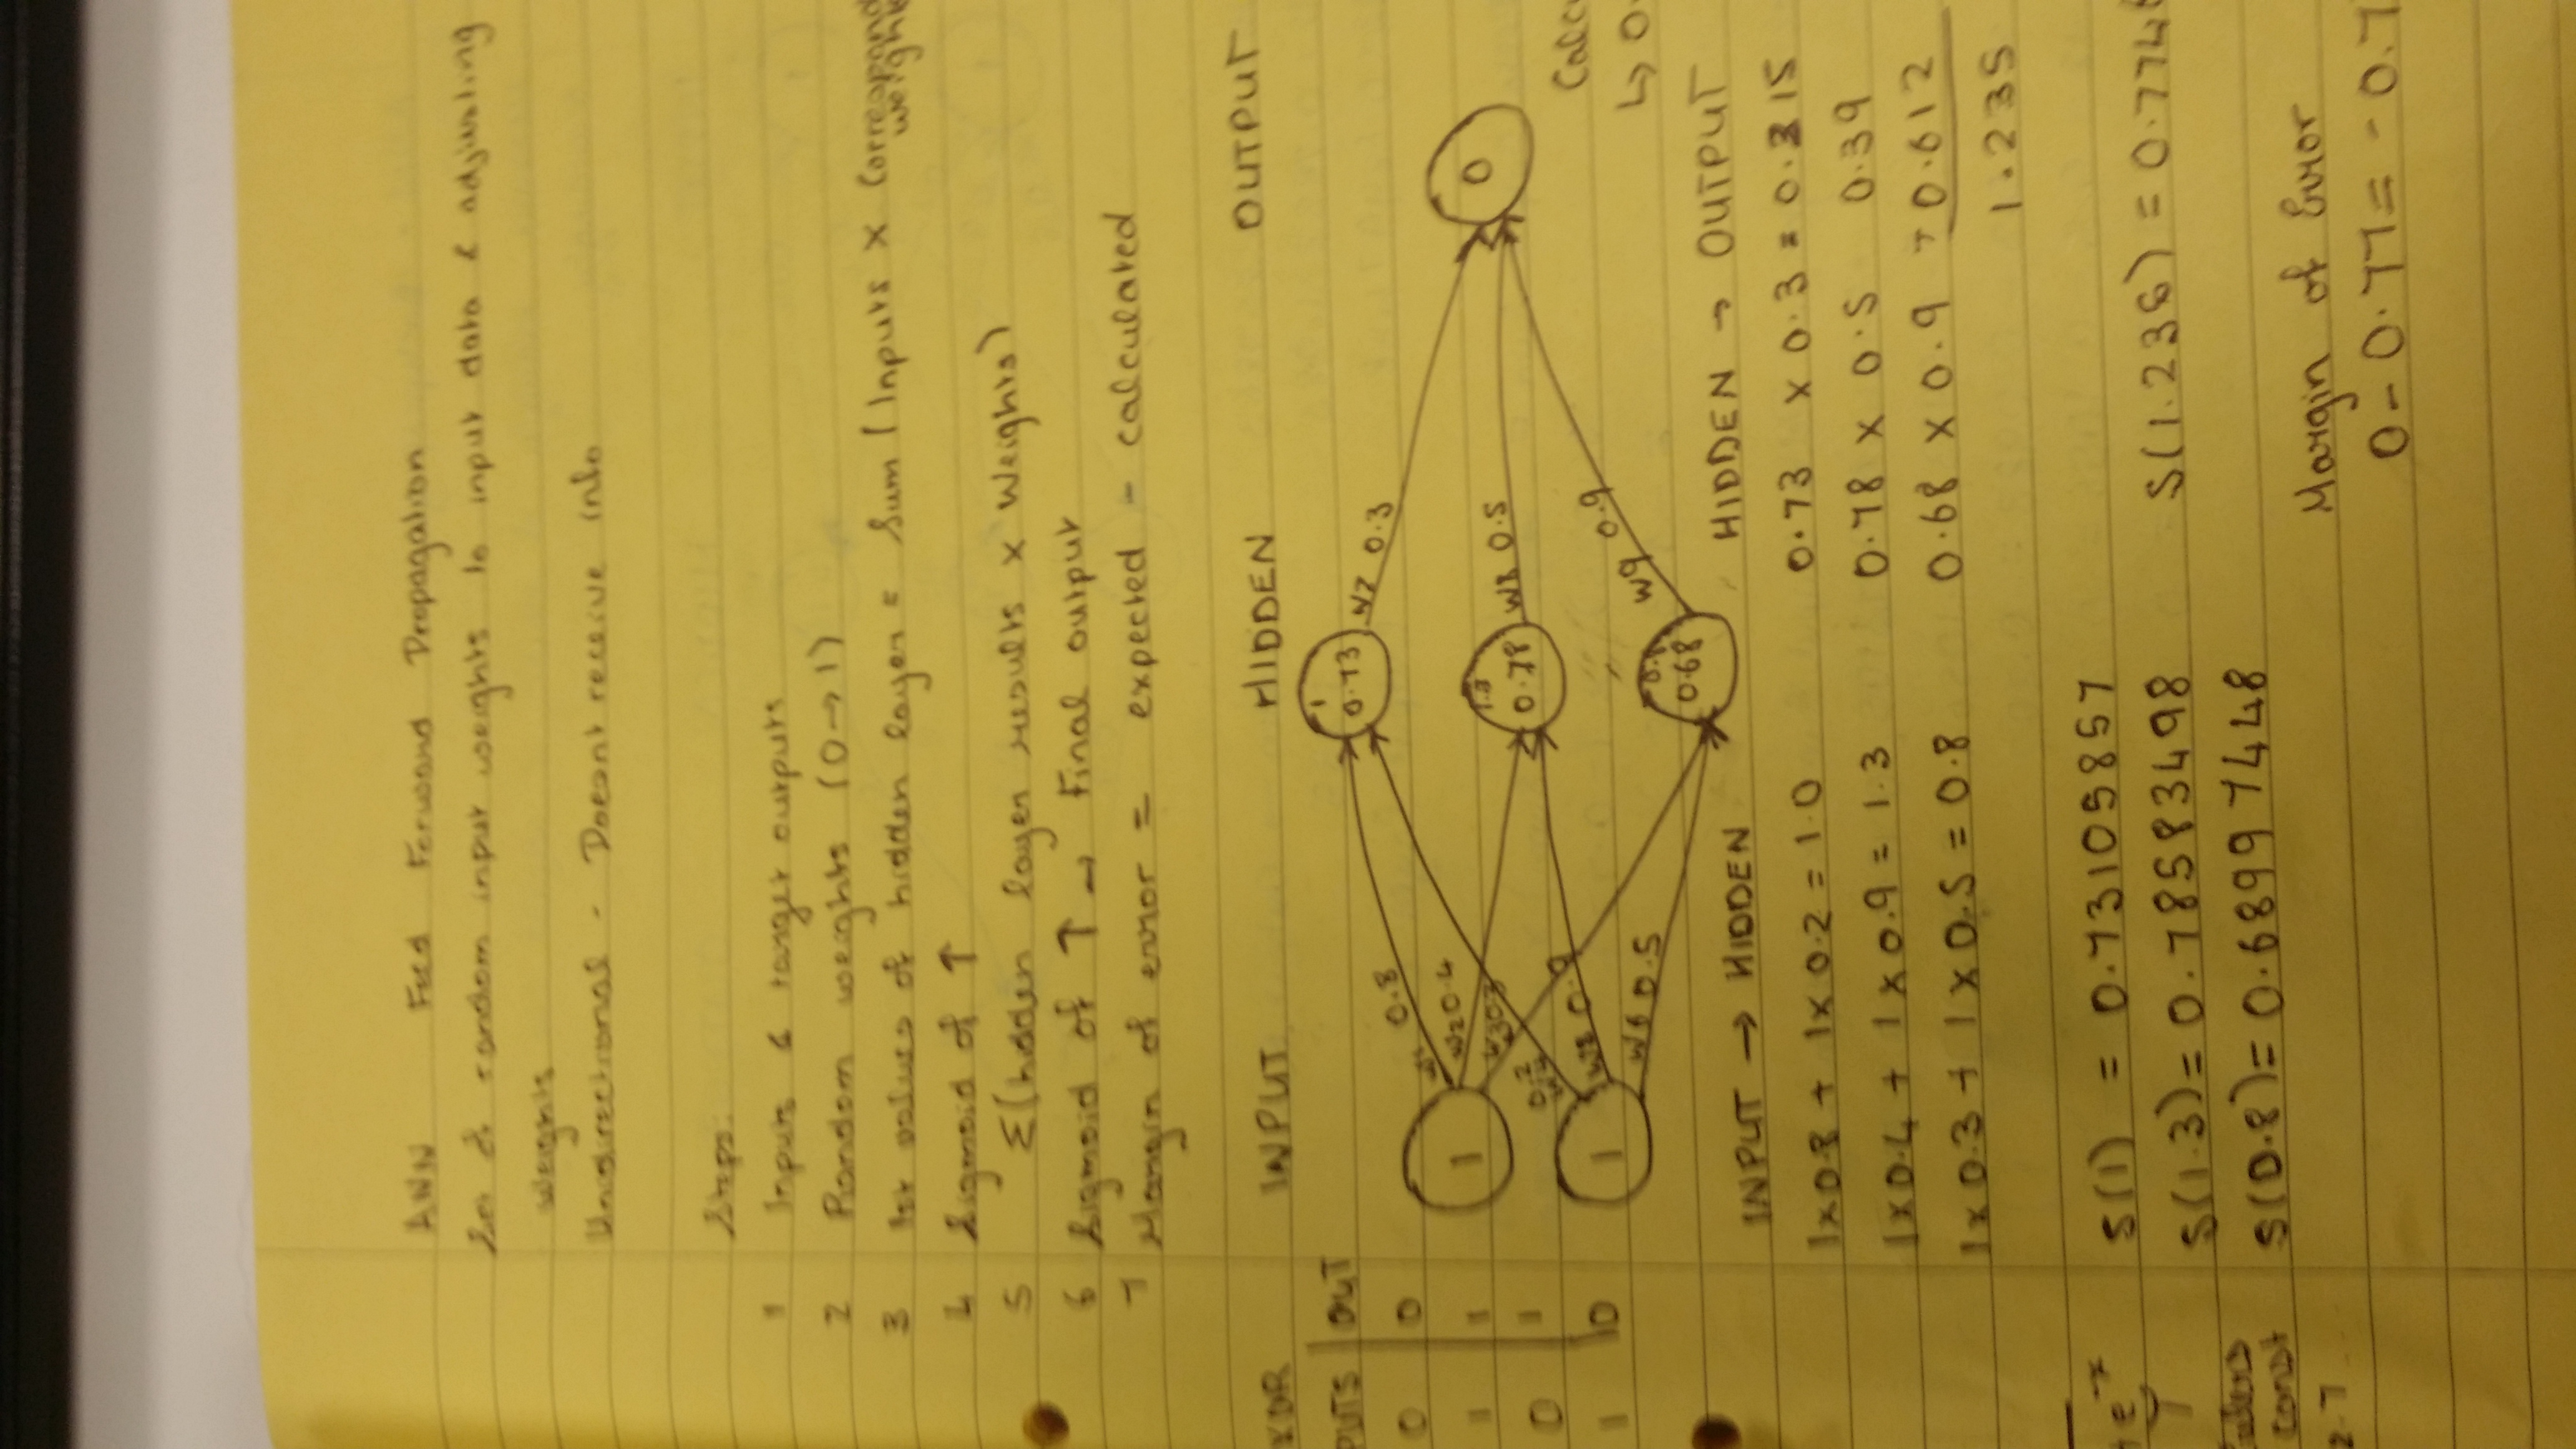 ANN Feed Forward Propagation
random input weights to input data & adjusting
weights
Unidirectional - Doesnt receive info
Steps:
1 Inputs & target outputs
2 Random weights (0→1)
3 values of hidden layer = Sum (Inputs x Correspond
weight
4 Sigmoid of ↑
5 Σ(hidden layer results x Weights)
6 Sigmoid of ↑ → Final output
7 Margin of error = expected - calculated
XOR INPUT HIDDEN OUTPUT
PUTS OUT
0 0
1 1
0 1
1 0
1
1
W1 0.8
W2 0.4
W3 0.3
0.2
W4
0.9
W6 0.5
1
0.73
1.3
0.78
0.8
0.68
W7 0.3
W8 0.5
W9 0.9
0
Calc
↳ 0.
INPUT → HIDDEN
1x0.8 + 1x0.2 = 1.0
1x0.4 + 1x0.9 = 1.3
1x0.3 + 1x0.5 = 0.8
HIDDEN → OUTPUT
0.73 x 0.3 = 0.215
0.78 x 0.5 0.39
0.68 x 0.9 + 0.612
1.235
+e^-x
S(1) = 0.73105857
S(1.3) = 0.78583498
S(0.8) = 0.68997448
const
2.7
S(1.235) = 0.774
Margin of Error
0 - 0.77 = -0.7